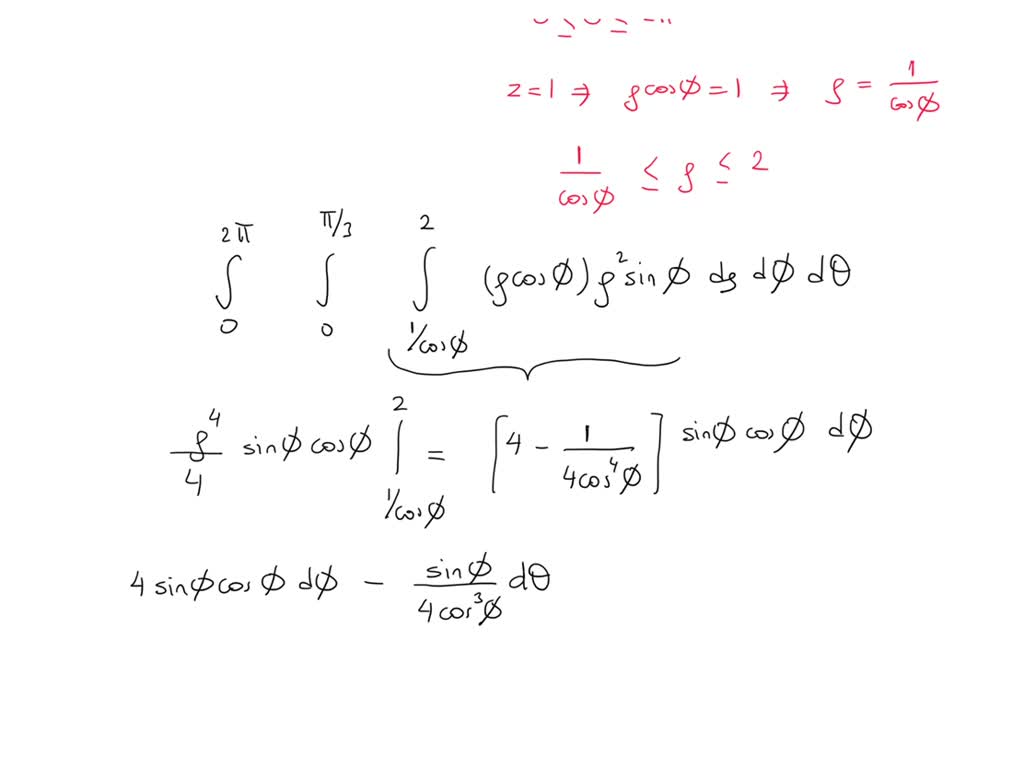 z=1 ⇒ ρcosφ=1 ⇒ ρ = 1/cosφ
1/cosφ ≤ ρ ≤ 2
∫_0^{2π} ∫_0^{π/3} ∫_{1/cosφ}^{2} (ρcosφ)ρ² sinφ dρ dφ dθ
ρ⁴/4 sinφ cosφ |_{1/cosφ}^{2} = [4 - 1/(4cos⁴φ)] sinφ cosφ dφ
4 sinφ cosφ dφ - sinφ/(4cos³φ) dθ